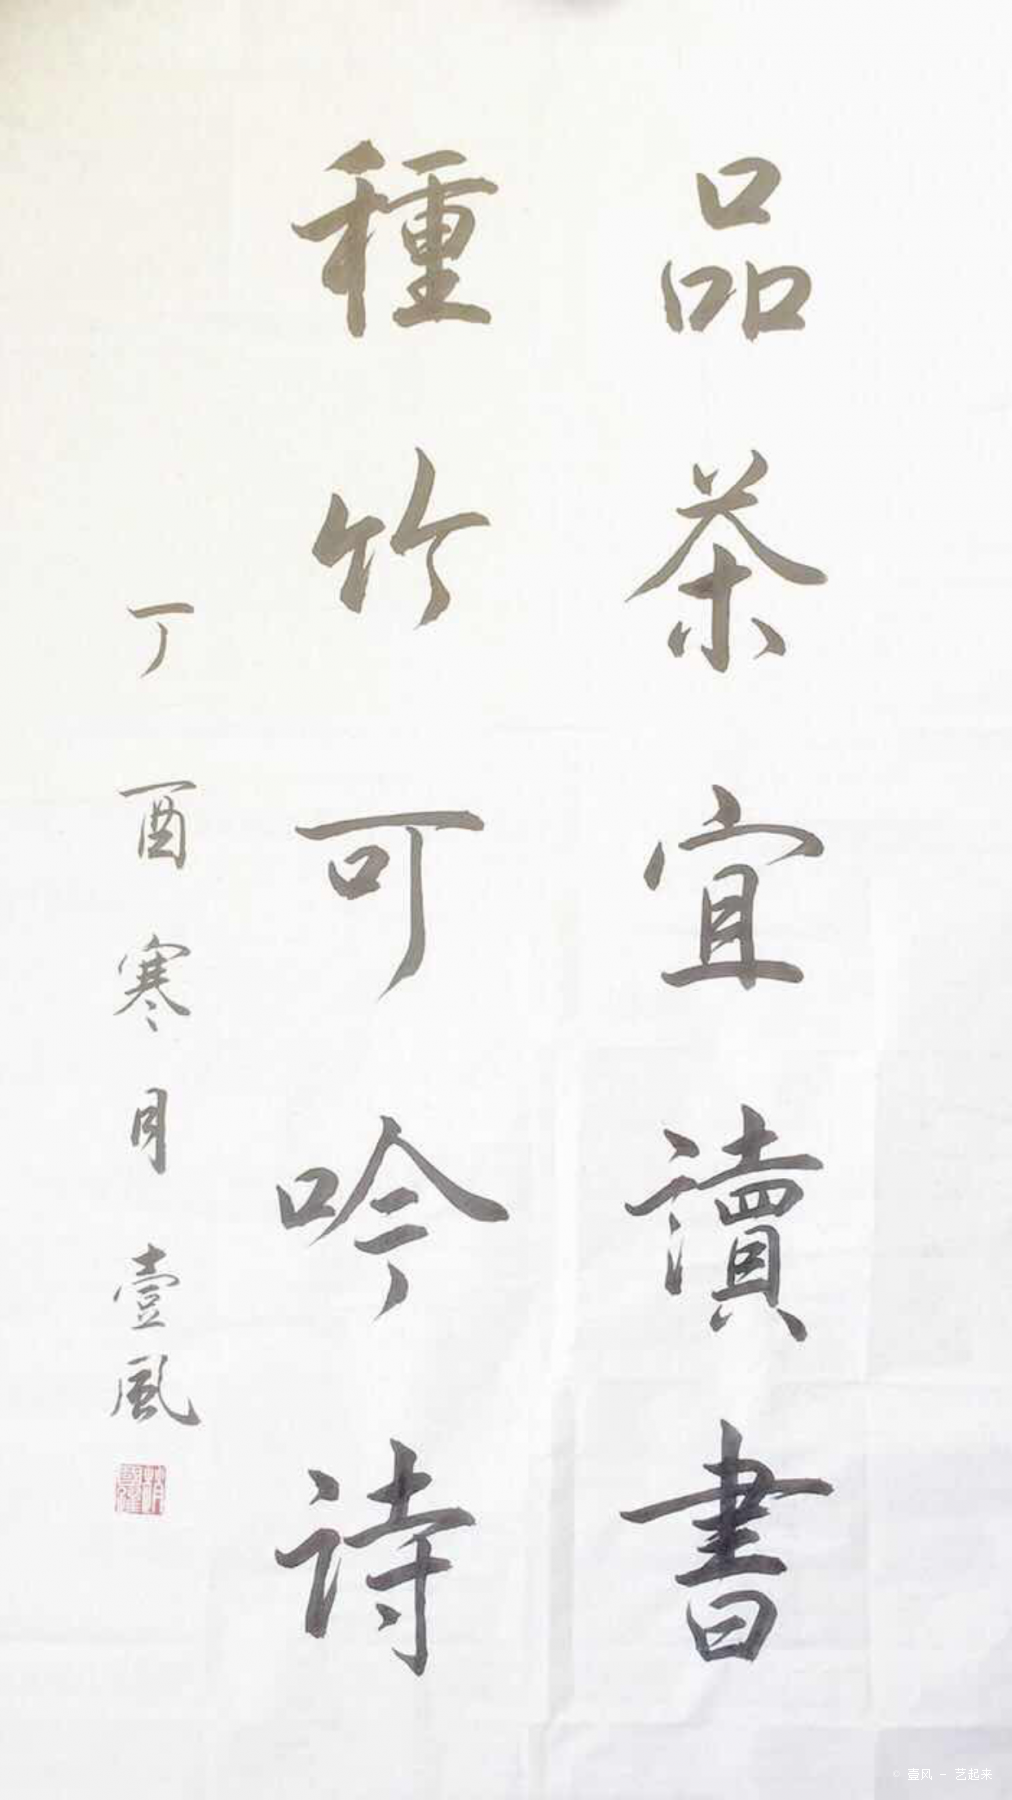 品茶宜讀書
種竹可吟詩
丁酉寒月壹風
© 壹风 - 艺起来